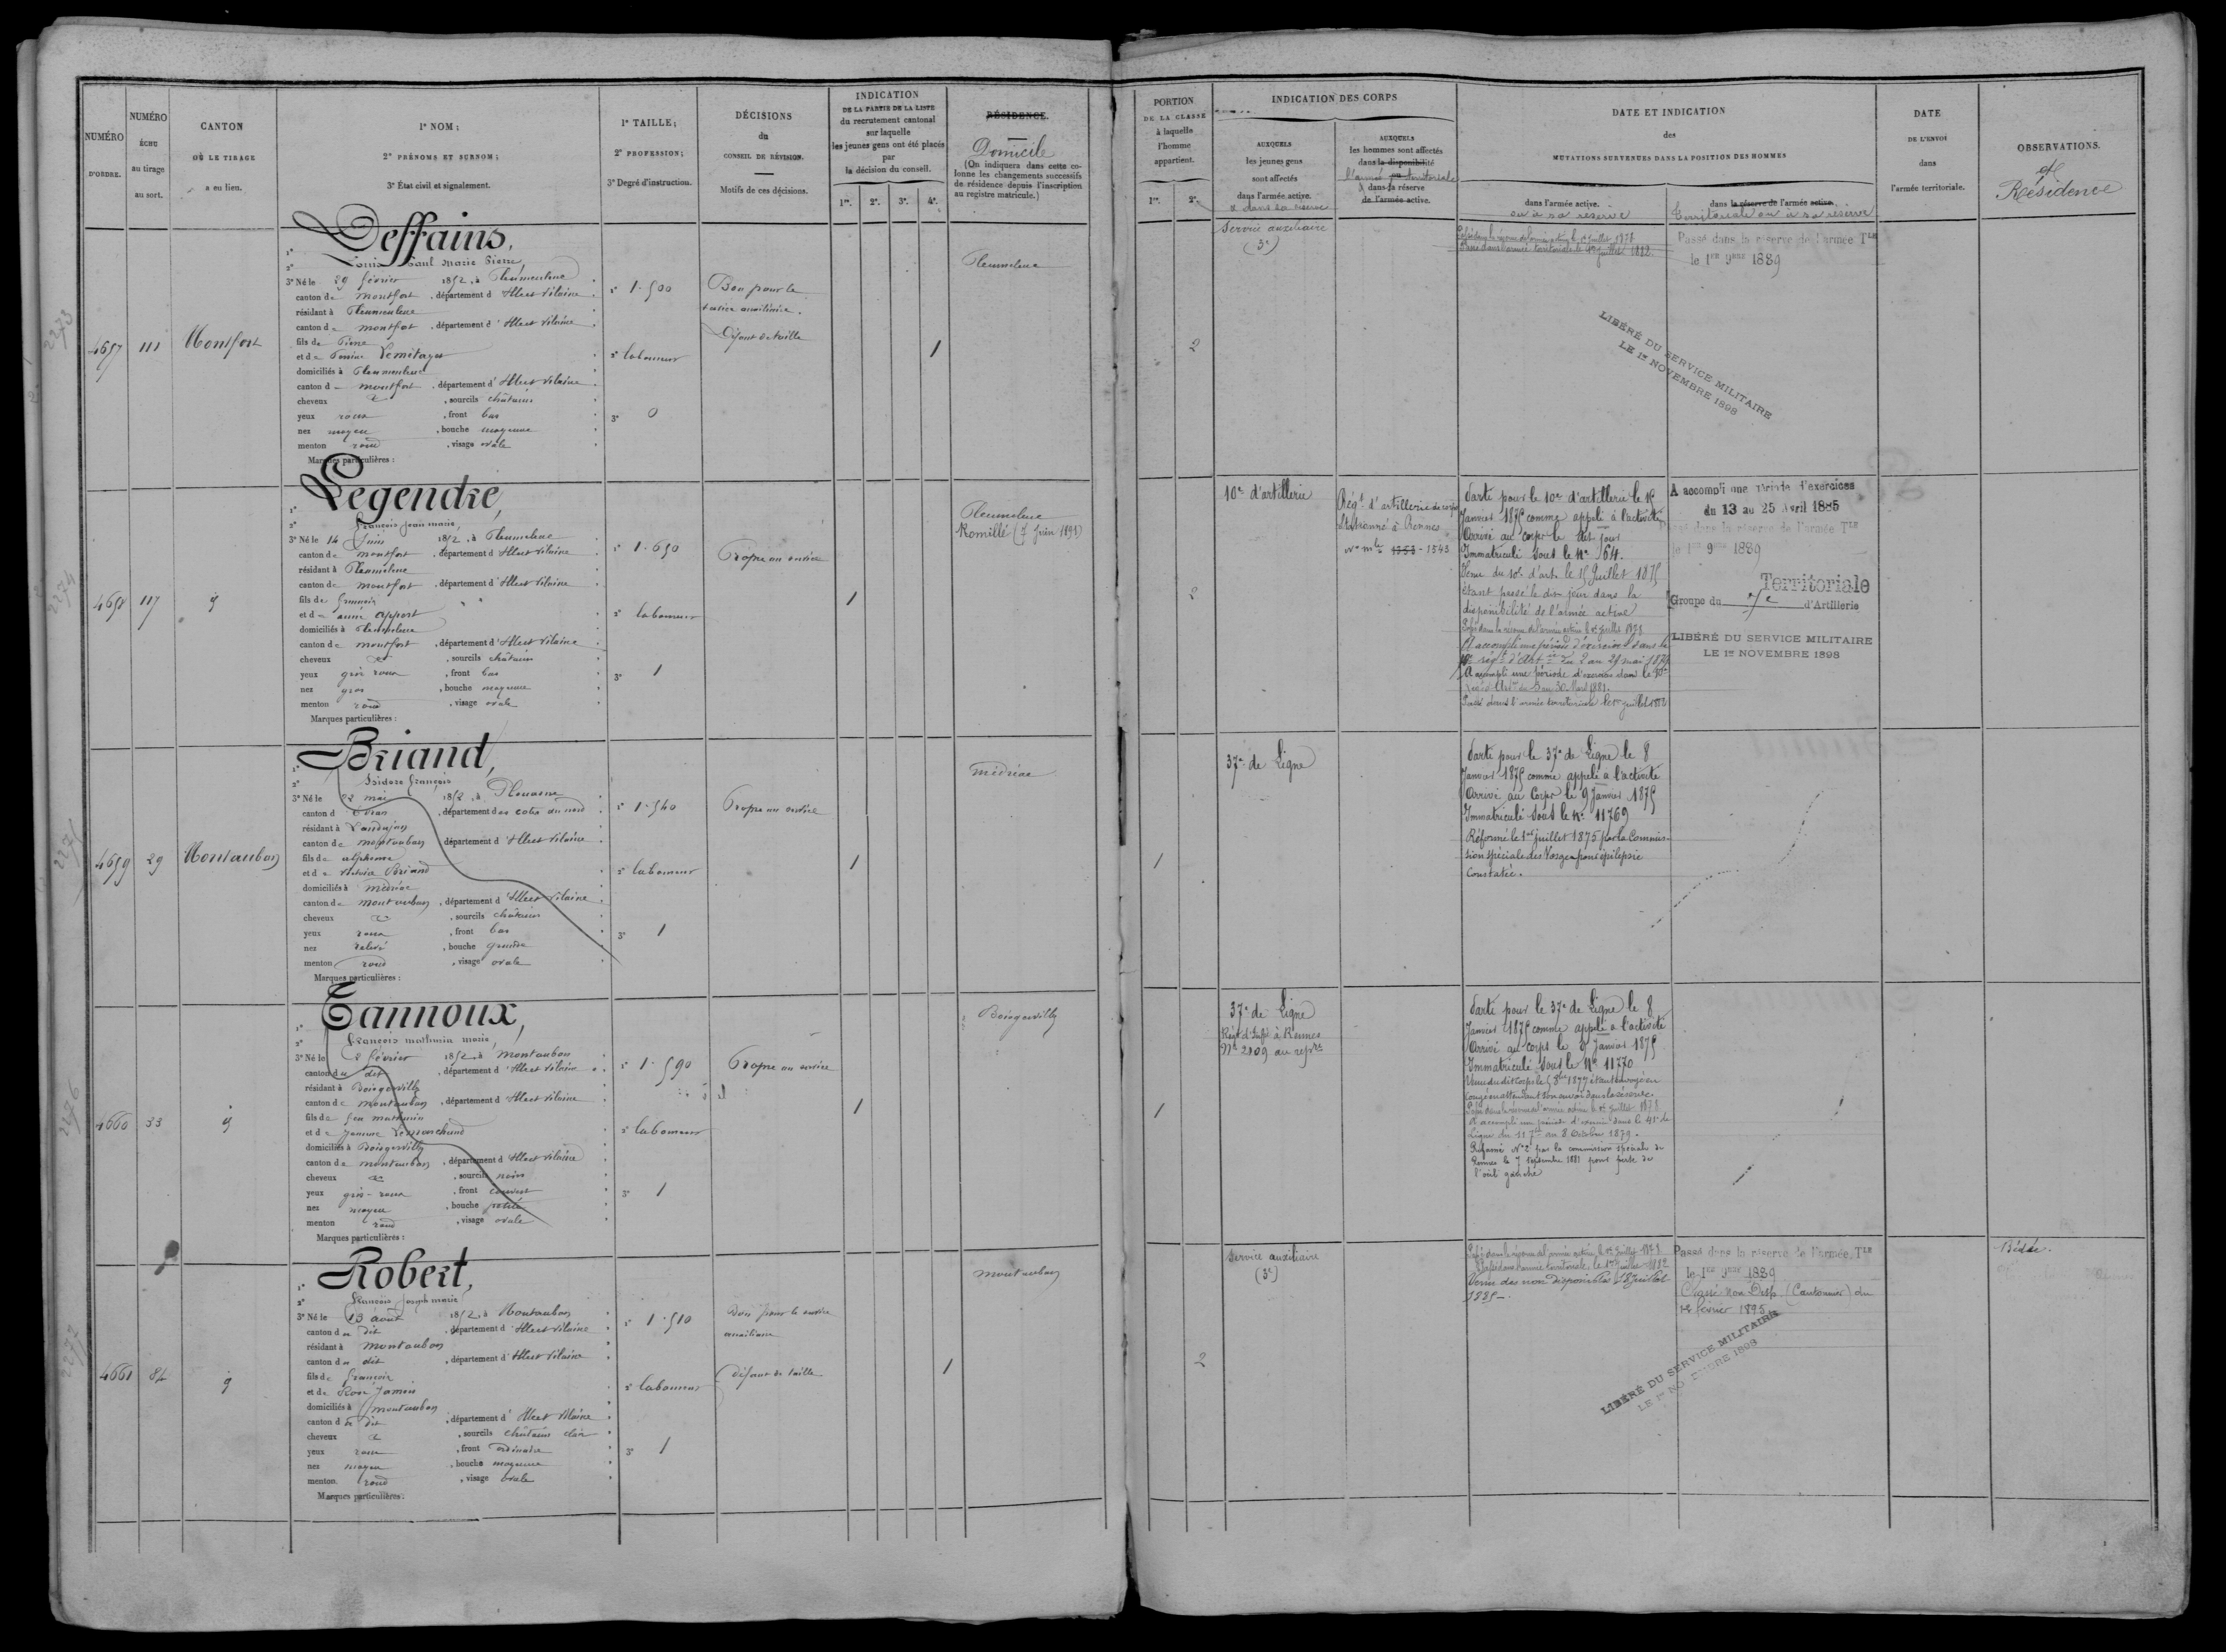 NUMÉRO
D'ORDRE.
NUMÉRO
ÉCHU
au tirage
au sort.
CANTON
OÙ LE TIRAGE
a eu lieu.
1° NOM;
2° PRÉNOMS ET SURNOM;
3° État civil et signalement.
1° TAILLE;
2° PROFESSION;
3° Degré d'instruction.
DÉCISIONS
du
CONSEIL DE RÉVISION.
Motifs de ces décisions.
INDICATION
DE LA PARTIE DE LA LISTE
du recrutement cantonal
sur laquelle
les jeunes gens ont été placés
par
la décision du conseil.
1re. 2e. 3e. 4e.
RÉSIDENCE.
Domicile
(On indiquera dans cette co-
lonne les changements successifs
de résidence depuis l'inscription
au registre matricule.)
PORTION
DE LA CLASSE
à laquelle
l'homme
appartient.
1re. 2e.
INDICATION DES CORPS
AUXQUELS
les jeunes gens
sont affectés
dans l'armée active.
& dans sa réserve
AUXQUELS
les hommes sont affectés
dans la disponibilité
l'armée territoriale
& dans sa réserve
de l'armée active.
DATE ET INDICATION
des
MUTATIONS SURVENUES DANS LA POSITION DES HOMMES
dans l'armée active.
ou à sa réserve
dans la réserve de l'armée active.
territoriale ou à sa réserve
DATE
DE L'ENVOI
dans
l'armée territoriale.
OBSERVATIONS.
et
Résidence
2273
4657
111
Montfort
1° Deffains,
2° Louis Paul Marie Pierre,
3° Né le 29 février 1852, à Pleumeleuc
canton de Montfort, département d'Ille et Vilaine
résidant à Pleumeleuc
canton de Montfort, département d'Ille et Vilaine
fils de Pierre
et de Perrine Lemitayer
domiciliés à Pleumeleuc
canton de Montfort, département d'Ille et Vilaine
cheveux et, sourcils châtains
yeux roux, front bas
nez moyen, bouche moyenne
menton rond, visage ovale
Marques particulières :
1° 1.500
2° laboureur
3° 0
Bon pour le
service auxiliaire.
Défaut de taille
1
Pleumeleuc
2
Service auxiliaire
(3e)
Passé dans la réserve de l'armée active le 1er juillet 1878
Passé dans l'armée territoriale le 1er juillet 1882.
Passé dans la réserve de l'armée Tle
le 1er 9bre 1889
LIBÉRÉ DU SERVICE MILITAIRE
LE 1er NOVEMBRE 1898
2274
4658
117
d
1° Legendre,
2° François Jean Marie,
3° Né le 14 Juin 1852, à Pleumeleuc
canton de Montfort, département d'Ille et Vilaine
résidant à Pleumeleuc
canton de Montfort, département d'Ille et Vilaine
fils de François
et de Anne Apport
domiciliés à Pleumeleuc
canton de Montfort, département d'Ille et Vilaine
cheveux et, sourcils châtains
yeux gris roux, front bas
nez gros, bouche moyenne
menton rond, visage ovale
Marques particulières :
1° 1.650
2° laboureur
3° 1
Propre au service
1
Pleumeleuc
Romillé (7 Juin 1891)
2
10e d'artillerie
Régt d'artillerie de corps
Stationné à Rennes
No mle 1353 - 1543
Parti pour le 10e d'artillerie le 15
Janvier 1875 comme appelé à l'activité
Arrivé au corps le dit jour
Immatriculé sous le No 64.
Venu du 10e d'art. le 15 Juillet 1875
étant passé le dit jour dans la
disponibilité de l'armée active
Passé dans la réserve de l'armée active le 1er juillet 1878
A accompli une période d'exercices dans le
10e régt d'Art du 2 au 29 mai 1879
A accompli une période d'exercices dans le 10e
régt d'Art du 3 au 30 Mars 1881.
Passé dans l'armée territoriale le 1er juillet 1882
A accompli une période d'exercices
du 13 au 25 Avril 1885
Passé dans la réserve de l'armée Tle
le 1er 9bre 1889
Territoriale
Groupe du d'Artillerie
LIBÉRÉ DU SERVICE MILITAIRE
LE 1er NOVEMBRE 1898
2275
4659
29
Montauban
1° Briand,
2° Isidore François
3° Né le 22 mai 1852, à Plouasne
canton d'Evran, département des Cotes du nord
résidant à Landujan
canton de Montauban, département d'Ille et Vilaine
fils de Alphonse
et de Victoire Briand
domiciliés à Médréac
canton de Montauban, département d'Ille et Vilaine
cheveux et, sourcils châtains
yeux roux, front bas
nez relevé, bouche grande
menton rond, visage ovale
Marques particulières :
1° 1.540
2° laboureur
3° 1
Propre au service
1
Médréac
1
37e de Ligne
Parti pour le 37e de Ligne le 8
Janvier 1875 comme appelé à l'activité
Arrivé au Corps le 9 Janvier 1875
Immatriculé sous le No 11769
Réformé le 1er juillet 1875 par la Commis-
sion spéciale des Vosges pour épilepsie
Constatée.
2276
4660
33
d
1° Tannoux,
2° François Mathurin Marie,
3° Né le 2 février 1852, à Montauban
canton du dit, département d'Ille et Vilaine
résidant à Boisgervilly
canton de Montauban, département d'Ille et Vilaine
fils de feu Mathurin
et de Jeanne Lemarchand
domiciliés à Boisgervilly
canton de Montauban, département d'Ille et Vilaine
cheveux et, sourcils noirs
yeux gris-roux, front couvert
nez moyen, bouche petite
menton rond, visage ovale
Marques particulières :
1° 1.590
2° laboureur
3° 1
Propre au service
1
Boisgervilly
1
37e de Ligne
Régt d'Infie à Rennes
No 2109 au repre
Parti pour le 37e de Ligne le 8
Janvier 1875 comme appelé à l'activité
Arrivé au corps le 9 Janvier 1875
Immatriculé sous le No 11770
Venu du dit Corps le 5 8bre 1877 étant envoyé en
congé en attendant son envoi dans la réserve.
Passé dans la réserve de l'armée active le 1er juillet 1878
A accompli une période d'exercices dans le 41e de
Ligne du 11 7bre au 8 Octobre 1879.
Réformé No 2 par la commission spéciale de
Rennes le 7 septembre 1881 pour perte de
l'œil gauche
2277
4661
84
d
1° Robert,
2° François Joseph Marie
3° Né le 13 août 1852, à Montauban
canton du dit, département d'Ille et Vilaine
résidant à Montauban
canton du dit, département d'Ille et Vilaine
fils de François
et de Rose Jamin
domiciliés à Montauban
canton du dit, département d'Ille et Vilaine
cheveux et, sourcils châtains clair
yeux roux, front ordinaire
nez moyen, bouche moyenne
menton rond, visage ovale
Marques particulières :
1° 1.510
2° laboureur
3° 1
Bon pour le service
auxiliaire
défaut de taille
1
Montauban
2
Service auxiliaire
(3e)
Passé dans la réserve de l'armée active le 1er juillet 1878
Passé dans l'armée territoriale le 1er juillet 1882
Venu des non disponibles 18 Juillet
1885 -.
Passé dans la réserve de l'armée Tle
le 1er 9bre 1889
Classé Non Disp. (Cantonnier) du
1er février 1895
LIBÉRÉ DU SERVICE MILITAIRE
LE 1er NOVEMBRE 1898
Bédée.